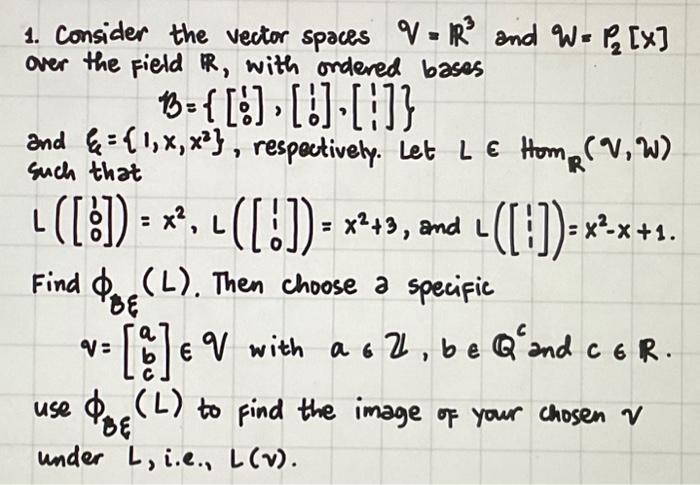 1. Consider the vector spaces V = ℝ³ and W = P₂[x]
over the field ℝ, with ordered bases
B = { [1 0 0], [1 1 0], [1 1 1] }
and ξ = {1, x, x²}, respectively. Let L ∈ Hom_ℝ(V, W)
such that
L([1 0 0]) = x², L([1 1 0]) = x²+3, and L([1 1 1]) = x²-x+1.
Find ϕ_Bξ(L). Then choose a specific
v = [a b c] ∈ V with a ∈ ℤ, b ∈ ℚᶜ and c ∈ ℝ.
use ϕ_Bξ(L) to find the image of your chosen v
under L, i.e., L(v).